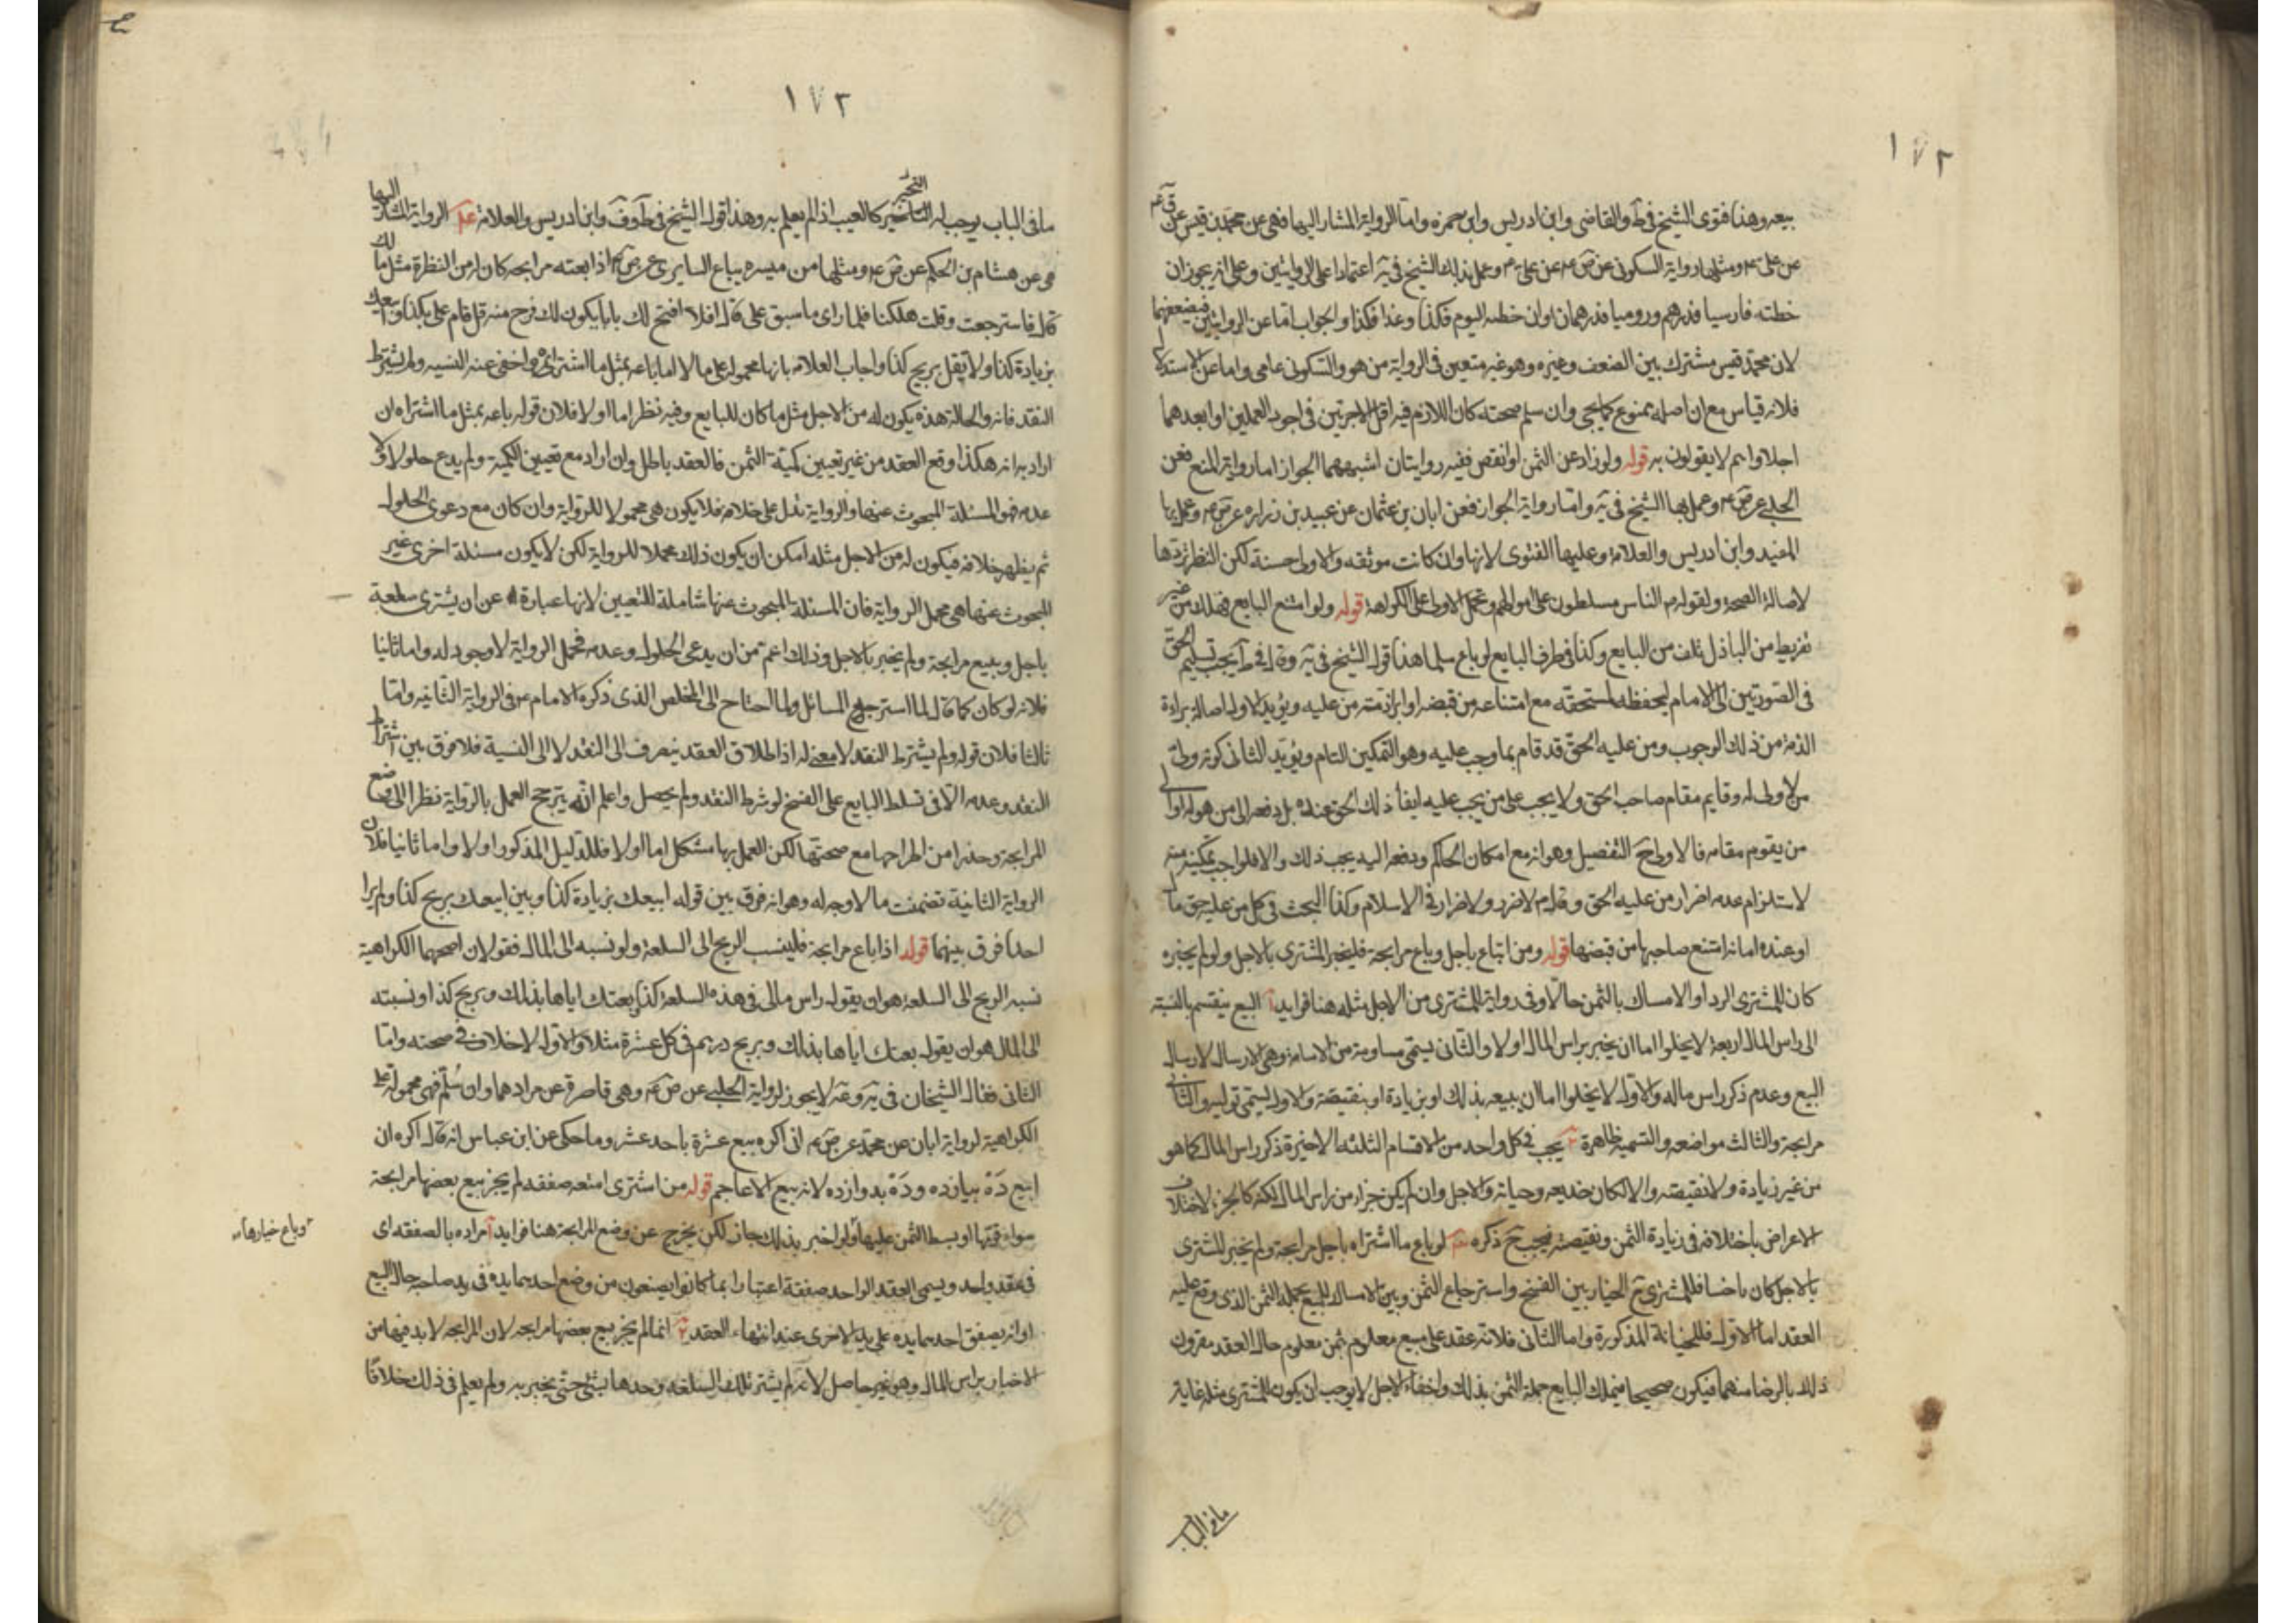 ١٧٢
بيعه وهذا فتوى الشيخ في ط والقاضي وابن ادريس وابن حمزه واما الرواية المشار اليها فهي عن محمد بن قيس عن
عن علي ع ومثلها رواية السكوني عن ص ع عن علي ع وعمل بذلك الشيخ في ية اعتمادا على الروايتين وعلى انه يجوز ان
خطته فارسيا فدرهم وروميا فدرهمان وان خطته اليوم فكذا وغدا فكذا والجواب اما عن الروايتين فبضعفهما
لان محمد قيس مشترك بين الضعف وغيره وهو غير متعين في الرواية من هو والسكوني عامي واما عن الاستدلا
فلانه قياس مع ان اصله ممنوع كما يجي وان سلم صحته كان اللازم فيه اقل الاجرتين في اجود العملين او ابعدهما
اجلا وانتم لا يقولون به قوله ولو زاد عن الثمن او انقص ففيه روايتان اشبههما الجواز اما رواية المنع فعن
الحلبي عن ص ع وعمل بها الشيخ في ية واما رواية الجواز فعن ابان بن عثمان عن عبيد بن زراره عن ص ع وعمل بها
المفيد وابن ادريس والعلامة وعليها الفتوى لانها وان كانت موثقه والاولى حسنة لكن النظر يردها
لاصالة الصحة ولقوله ع الناس مسلطون على اموالهم وتحمل الاولى على الكراهة قوله ولو امتنع البايع فهلك من غير
تفريط من الباذل تلف من البايع وكذا في طرف البايع لو باع سلما هذا قول الشيخ في ية وقال في ط يجب تسليم الحق
في الصورتين الى الامام ليحفظه لمستحقه مع امتناعه من قبضه او ابراء ذمته من عليه ويؤيد الاول اصالة براءة
الذمة من ذلك الوجوب ومن عليه الحق قد قام بما وجب عليه وهو التمكين التام ويؤيد الثاني كونه ولي
من لا ولي له وقايم مقام صاحب الحق ولا يجب على من يجب عليه ايفا ذلك الحق عنده بل دفعه الى من هو له او الى
من يقوم مقامه فالاولى ح التفصيل وهو انه مع امكان الحاكم ودفعه اليه يجب ذلك والا فالواجب تمكينه منه
لاستلزام عدمه اضرار من عليه الحق وقال ع لا ضرر ولا ضرار في الاسلام وكذا البحث في كل من عليه حق ما
او عنده امانة امتنع صاحبها من قبضها قوله ومن ابتاع باجل وباع مرابحة فليخبر المشتري بالاجل ولو لم يخبره
كان للمشتري الرد او الامساك بالثمن حالا وفي رواية للمشتري من الاجل مثله هنا فوايد آ البيع ينقسم بالنسبة
الى راس المال اربعة لا يخلوا اما ان يخبر براس المال اولا والثاني يسمى مساومة من الاسامة وهي الارسال لارسال
البيع وعدم ذكر راس ماله والاول لا يخلوا اما ان يبيعه بذلك او بزيادة او بنقيصة والاول يسمى تولية والثاني
مرابحة والثالث مواضعه والتسمية ظاهرة يجب في كل واحد من الاقسام الثلثه الاخيرة ذكر راس المال كما هو
من غير زيادة ولا نقيصة والا لكان خديعه وخيانة والاجل وان لم يكن جزاء من راس المال لكنه كالجزء لاختلاف
الاعراض باختلافه في زيادة الثمن ونقيصته فيجب ح ذكره لو باع ما اشتراه باجل مرابحة ولم يخبر المشتري
بالاجل كان خاينا فللمشتري ح الخيار بين الفسخ واسترجاع الثمن وبين الامساك للمبيع بجملة الثمن الذي وقع عليه
العقد اما الاول فللخيانة المذكورة واما الثاني فلانه عقد على مبيع معلوم بثمن معلوم حال العقد مقرون
ذلك بالرضا منهما فيكون صحيحا فيملك البايع جملة الثمن بذلك واخفاء الاجل لا يوجب ان يكون للمشتري مثله غاية
ما في الباب
١٧٢
ما في الباب يوجب له التخيير كالعيب اذا لم يعلم به وهذا قول الشيخ في ط وف وابن ادريس والعلامة الرواية المشار اليها
هي عن هشام بن الحكم عن ص ع ومثلها من ميسره بياع السابري عن ص ع اذا بعته مرابحه كان له من النظرة مثل مالك
قال فاسترجعت وقلت هلكنا فلما راى ما سبق على قال افلا افتح لك بابا يكون لك فرج منه قل قام على بكذا وابيعك
بزيادة كذا ولا تقل بربح كذا واجاب العلامه بانها محمولة على ما اذا باعه بمثل ما اشتراه واخفى عنه النسيه ولم يشترط
النقد فانه والحالة هذه يكون له من الاجل مثل ما كان للبايع وفيه نظر اما اولا فلان قوله باعه بمثل ما اشتراه ان
اراد به انه هكذا وقع العقد من غير تعيين كمية الثمن فالعقد باطل وان اراد مع تعيين الكمية ولم يدع حلولا ولا
عدمه فهو المسئلة المبحوث عنها والرواية تدل على خلافه فلا يكون هي محمولا للرواية وان كان مع دعوى الحلول
ثم يظهر خلافه فيكون له من الاجل مثله امكن ان يكون ذلك محملا للرواية لكن لا يكون مسئلة اخرى غير
المبحوث عنها هي محمل الرواية فان المسئلة المبحوث عنها شاملة للتعيين لانها عبارة عن ان يشتري سلعة
باجل ويبيع مرابحة ولم يخبر بالاجل وذلك اعم من ان يدعى الحلول وعدمه فحمل الرواية لا وجود له واما ثانيا
فلانه لو كان كما قال لما استرجع السائل ولما احتاج الى المخلص الذي ذكره الامام ع في الرواية الثانيه واما
ثالثا فلان قوله ولم يشترط النقد لا معنى له اذ اطلاق العقد ينصرف الى النقد لا الى النسية فلا فرق بين اشتراط
النقد وعدمه الا في تسلط البايع على الفسخ لو شرط النقد ولم يحصل واعلم انه يترجح العمل بالرواية نظرا الى وضع
المرابحة وحذرا من اطراحها مع صحتها لكن العمل بها مشكل اما اولا فللدليل المذكور اولا واما ثانيا فلان
الرواية الثانية تضمنت ما لا وجه له وهو انه فرق بين قوله ابيعك بزيادة كذا وبين ابيعك بربح كذا ولم ار
احدا فرق بينهما قوله اذا باع مرابحة فلينسب الربح الى السلعة ولو نسبه الى المال فقولان اصحهما الكراهية
نسبة الربح الى السلعة هو ان يقول راس مالى في هذه السلعة كذا بعتك اياها بذلك وبربح كذا ونسبته
الى المال هو ان يقول بعتك اياها بذلك وبربح درهم في كل عشرة مثلا والاول لا خلاف في صحته واما
الثاني فقال الشيخان في ية وعة لا يجوز لرواية الحلبي عن ص ع وهي قاصرة عن مرادهما وان سلم فهى محمولة على
الكراهية لرواية ابان عن محمد عن ص ع انى اكره بيع عشرة باحد عشر وما حكى عن ابن عباس انه قال اكره ان
ابيع ده بيازده وده بدوازده لانه بيع الاعاجم قوله من اشترى امتعه صفقه لم يجز بيع بعضها مرابحة
سواء قومها او بسط الثمن عليها ولو اخبر بذلك جاز لكن يخرج عن وضع المرابحة هنا فوايد آ مراده بالصفقه اى
في عقد واحد ويسمى العقد الواحد صفقة اعتبارا بما كانوا يصنعون من وضع احدهما يده في يد صاحبه حال البيع
او انه يصفق احدهما يده على يد الاخرى عند انتهاء العقد انما لم يجز بيع بعضها مرابحه لان المرابحه لا بد فيها من
الاخبار براس المال وهو غير حاصل لانه لم يشتر تلك السلعة وحدها بشئ حتى يخبر به ولم يعلم في ذلك خلافا
وباع خيارها